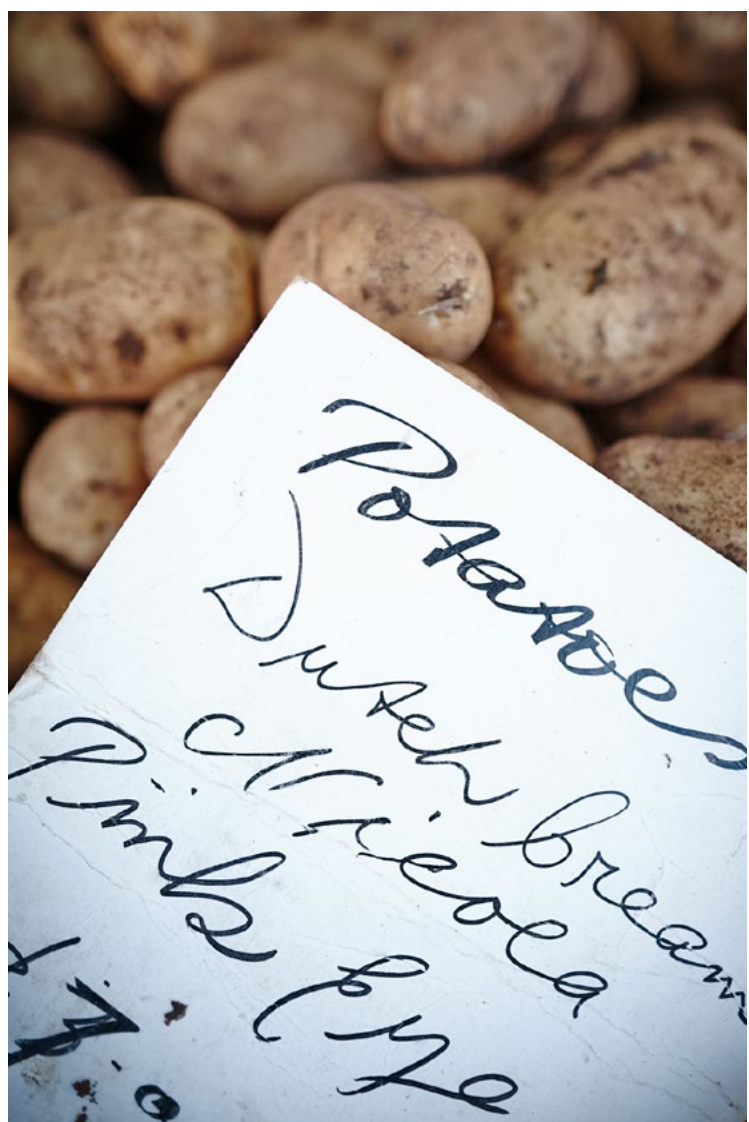 Potatoes
Dutch Creams
Nicola
Pink Eye